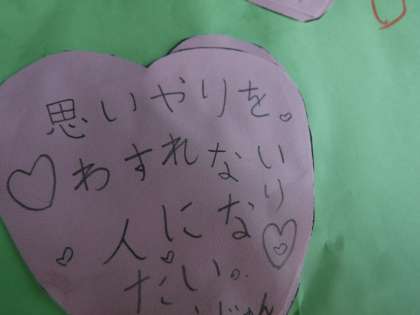 思いやりを。
わすれない
人になり
たい。